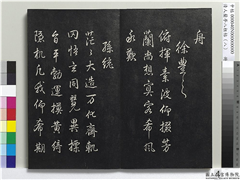 舟
徐豐之
俯揮素波仰掇芳
蘭尚想嘉客希風
永歎
孫統
茫〻大造万化齊軌
罔悟玄同競異標
旨平勃運謨黃綺
隱机凡我仰希期